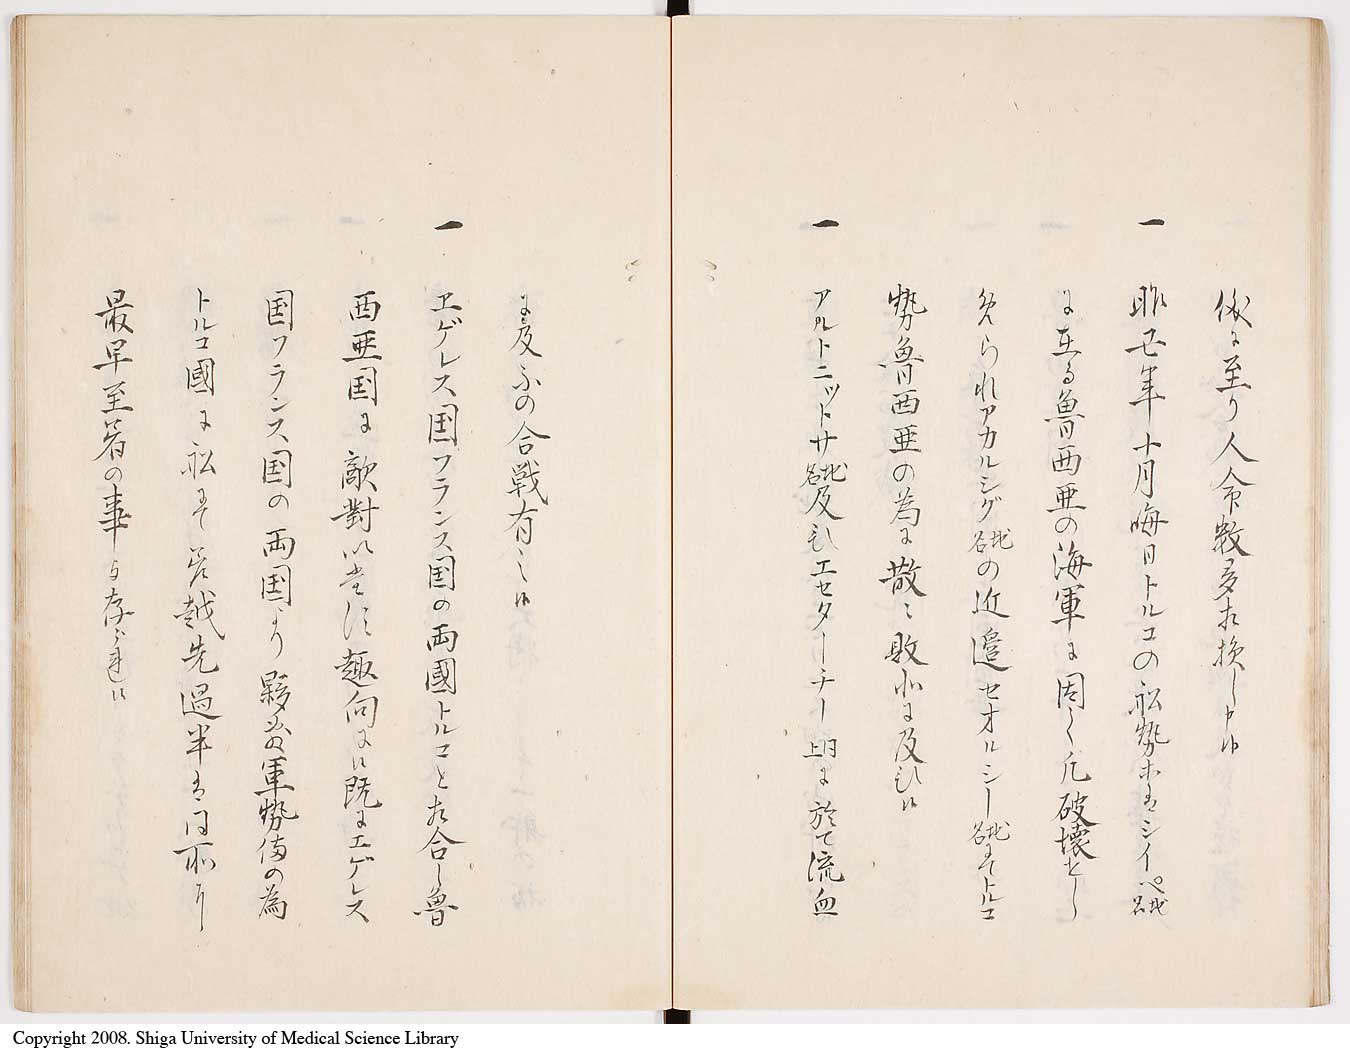 儀ニ至り人命数多相損し申候
一 昨丑年十月晦日トルコの船勢等はシイペ地名
に在る魯西亜の海軍に因て破壊せし
められアカルシグ地名の近邊セオルシー地名にてトルコ
勢魯西亜の為に散々敗北に及ひ候
一 アルトニットサ地名及ひエセターチー同上に於て流血
に及ふの合戦有之候
一 ヱゲレス国フランス国の両國トルコと相合し魯
西亜国に敵對いたす趣向に候既にエゲレス
国フランス国の両国より夥敷軍勢備の為
トルコ國に船にて差越先過半は同所に
最早至着の事与存候
Copyright 2008. Shiga University of Medical Science Library